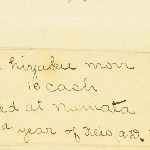 hiyaku mon
16 cash
ed at Numata
d year of Keio, a.D.